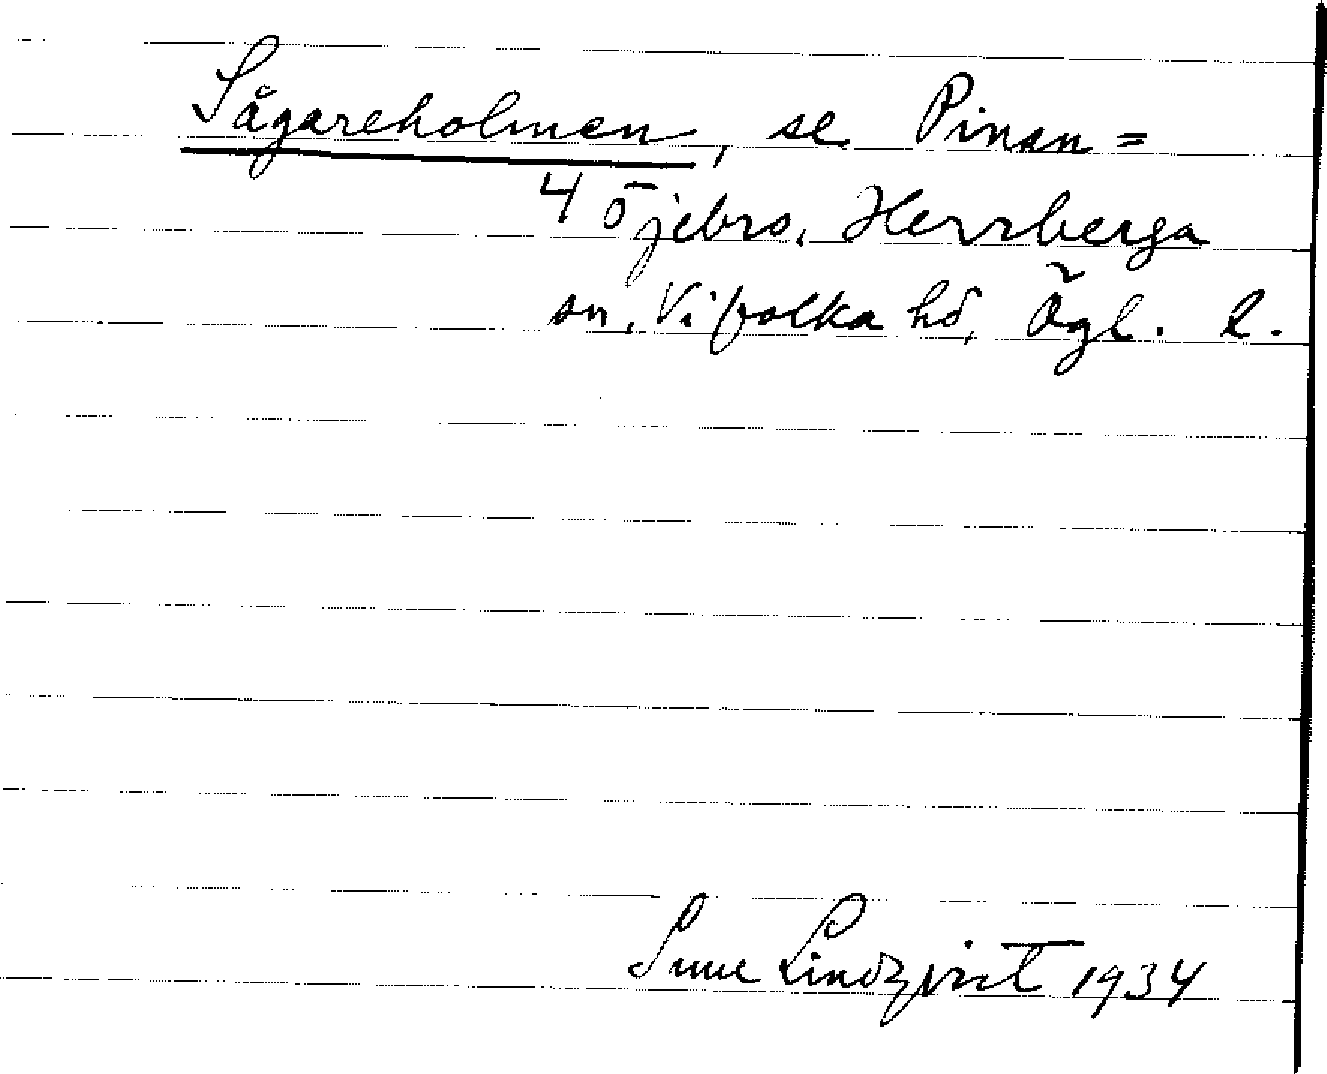 Sågareholmen, se Pinan=
4 Öjebro, Herrberga
sn, Vifolka hd, Ögl. l.
Sune Lindqvist 1934